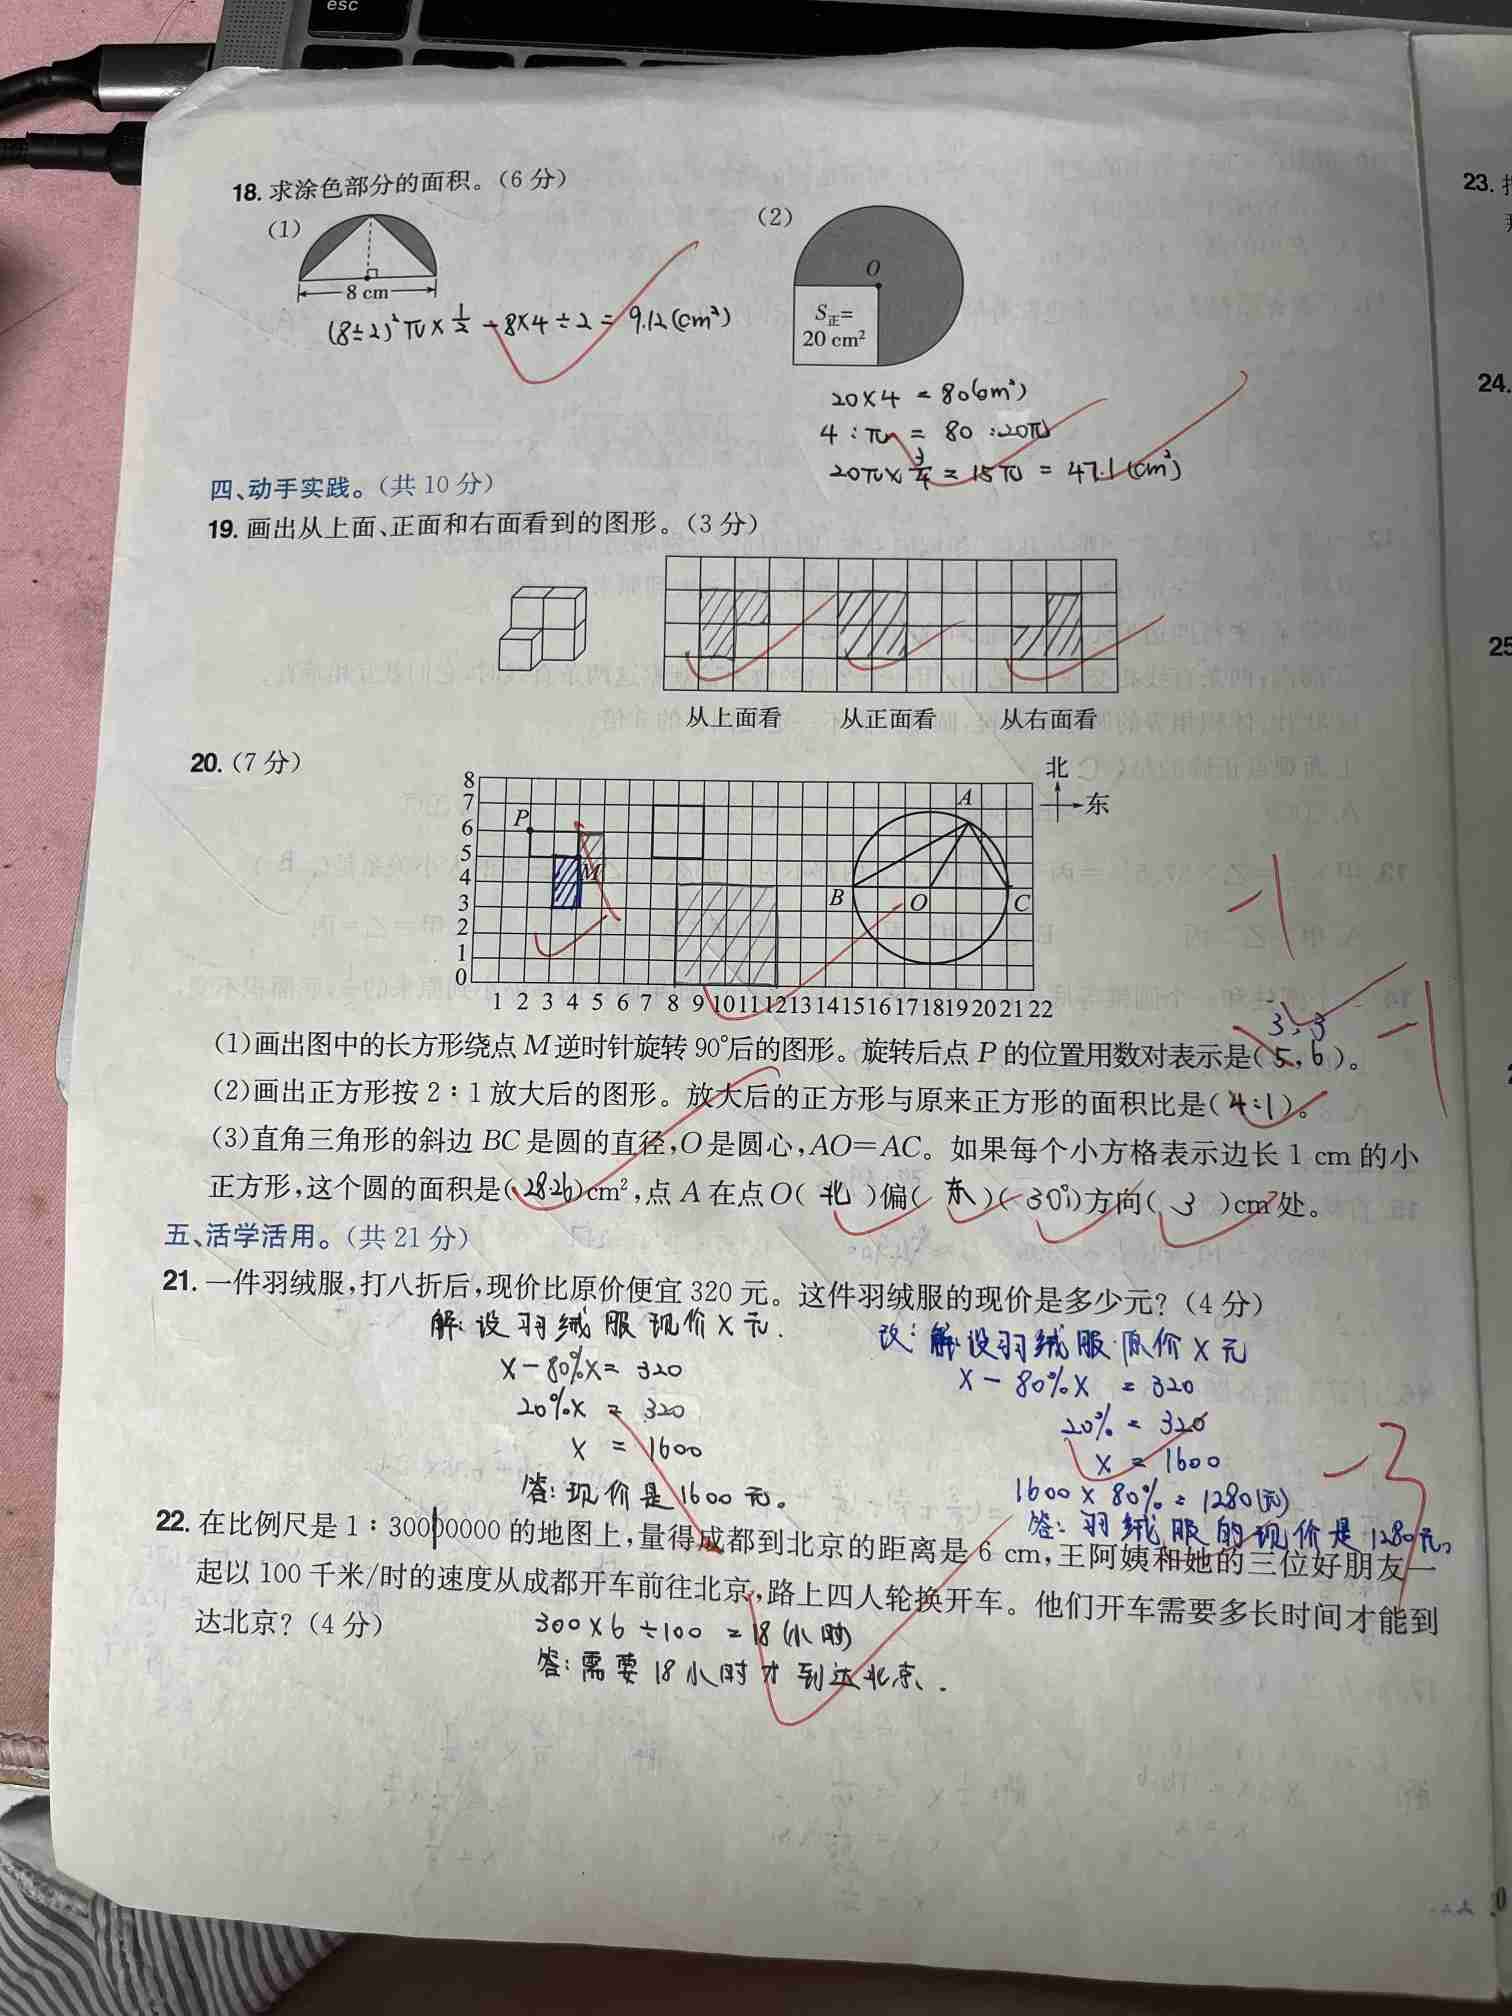 esc
18. 求涂色部分的面积。(6 分)
(1)
8 cm
(8÷2)²π×1/2-8×4÷2=9.12(cm²)
(2)
O
S正=
20 cm²
20×4=80(cm²)
4:π=80:20π
20π×3/4=15π=47.1(cm²)
四、动手实践。(共 10 分)
19. 画出从上面、正面和右面看到的图形。(3 分)
从上面看 从正面看 从右面看
20. (7 分)
北
东
8
7
6
5
4
3
2
1
0
P
M
A
B
O
C
1 2 3 4 5 6 7 8 9 10 11 12 13 14 15 16 17 18 19 20 21 22
-1
3,3
-1
(1)画出图中的长方形绕点 M 逆时针旋转 90°后的图形。旋转后点 P 的位置用数对表示是(5,6)。
(2)画出正方形按 2:1 放大后的图形。放大后的正方形与原来正方形的面积比是(4:1)。
(3)直角三角形的斜边 BC 是圆的直径,O 是圆心,AO=AC。如果每个小方格表示边长 1 cm 的小
正方形,这个圆的面积是(28.26)cm²,点 A 在点 O(北)偏(东)(30°)方向(3)cm 处。
五、活学活用。(共 21 分)
21. 一件羽绒服,打八折后,现价比原价便宜 320 元。这件羽绒服的现价是多少元?(4 分)
解:设羽绒服现价X元.
X-80%X=320
20%X=320
X=1600
答:现价是1600元。
改:解:设羽绒服原价X元
X-80%X=320
20%=320
X=1600
1600×80%=1280(元)
答:羽绒服的现价是1280元。
-3
22. 在比例尺是 1:30000000 的地图上,量得成都到北京的距离是 6 cm,王阿姨和她的三位好朋友一
起以 100 千米/时的速度从成都开车前往北京,路上四人轮换开车。他们开车需要多长时间才能到
达北京?(4 分)
300×6÷100=18(小时)
答:需要18小时才到达北京.
23.
24.
25